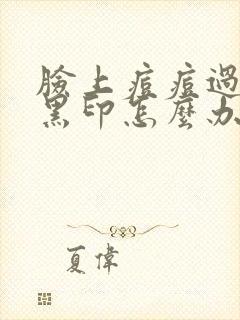 臉上痘痘過
黑印怎麼办
夏偉